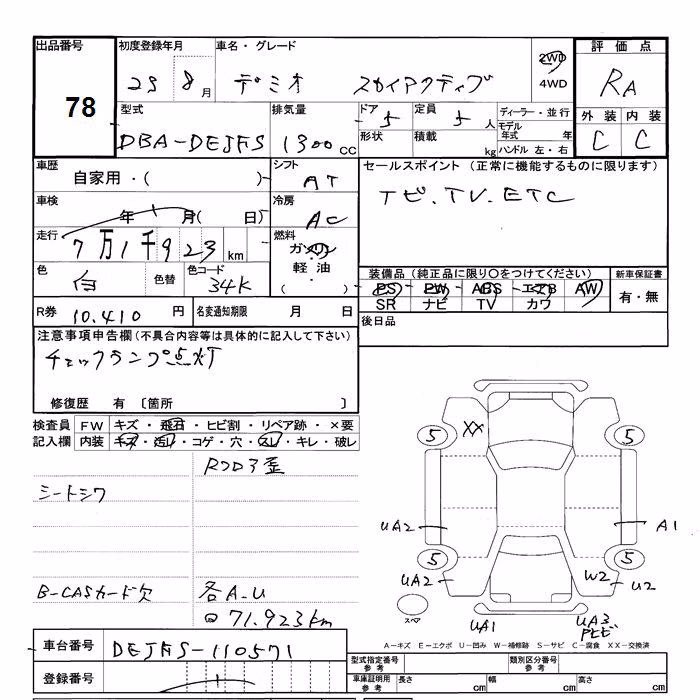 出品番号 78
初度登録年月 25 8月
車名・グレード デミオ スカイアクティブ
2WD 4WD
評価点 RA
外装 内装
C C
型式 DBA-DEJFS
排気量 1300 CC
ドア 5 形状
定員 5人 積載 kg
ディーラー・並行
モデル年式 年
ハンドル 左・右
車歴 自家用・( )
シフト AT
セールスポイント (正常に機能するものに限ります)
ナビ.TV.ETC
車検 年 月( 日)
冷房 AC
走行 7万1千923km
燃料 ガソリン 軽油・( )
色 白 色替
色コード 34K
装備品 (純正品に限り○をつけてください)
PS PW ABS エアB AW
SR ナビ TV カワ
新車保証書
有・無
R券 10.410 円
名変通知期限 月 日
後日品
注意事項申告欄(不具合内容等は具体的に記入して下さい)
チェックランプ点灯
修復歴 有 〔箇所 〕
検査員記入欄
FW キズ・飛石・ヒビ割・リペア跡・×要
内装 キズ・汚れ・コゲ・穴・スレ・キレ・破レ
Rフロア歪
シートシワ
B-CASカード欠
各A.U
71.923km
XX
5 5
UA2 A1
5 5
UA2 W2 U2
スペア
UA1 UA3
A−キズ E−エクボ U−凹み W−補修跡 S−サビ C−腐食 XX−交換済
車台番号 DEJFS-110571
登録番号
型式指定番号 参考
類別区分番号 参考
車庫証明用 参考
長さ cm 幅 cm 高さ cm